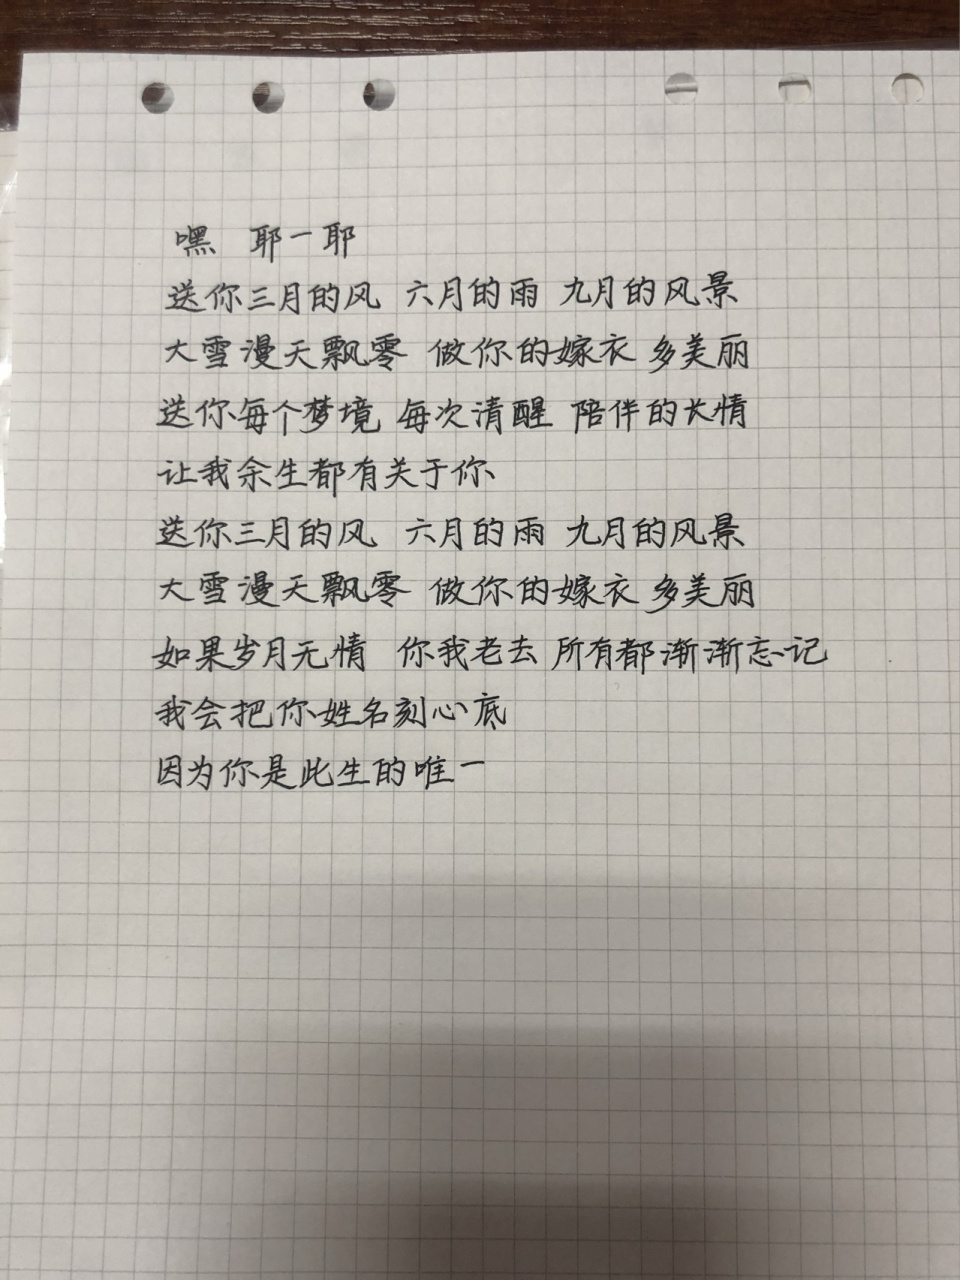 嘿 耶一耶
送你三月的风 六月的雨 九月的风景
大雪漫天飘零 做你的嫁衣 多美丽
送你每个梦境 每次清醒 陪伴的长情
让我余生都有关于你
送你三月的风 六月的雨 九月的风景
大雪漫天飘零 做你的嫁衣 多美丽
如果岁月无情 你我老去 所有都渐渐忘记
我会把你姓名刻心底
因为你是此生的唯一